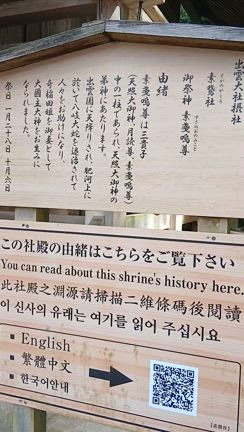 出雲大社摂社
素鵞社
御祭神 素戔嗚尊
由緒
素戔嗚尊は三貴子
(天照大御神、月読尊、素戔嗚尊)
中の一柱であられ、天照大御神の
弟神にあたります。
出雲国に天降りされ、肥河上に
於いて八岐大蛇を退治されて
人々をお助けになり、
奇稲田姫を御妻として
大國主大神をお生みに
なられました。
祭日 一月二十八日 十月六日
この社殿の由緒はこちらをご覧下さい
You can read about this shrine's history here.
此社殿之淵源請掃描二維條碼後閱讀
이 신사의 유래는 여기를 읽어 주십시요
■ English
■ 繁體中文
■ 한국어안내